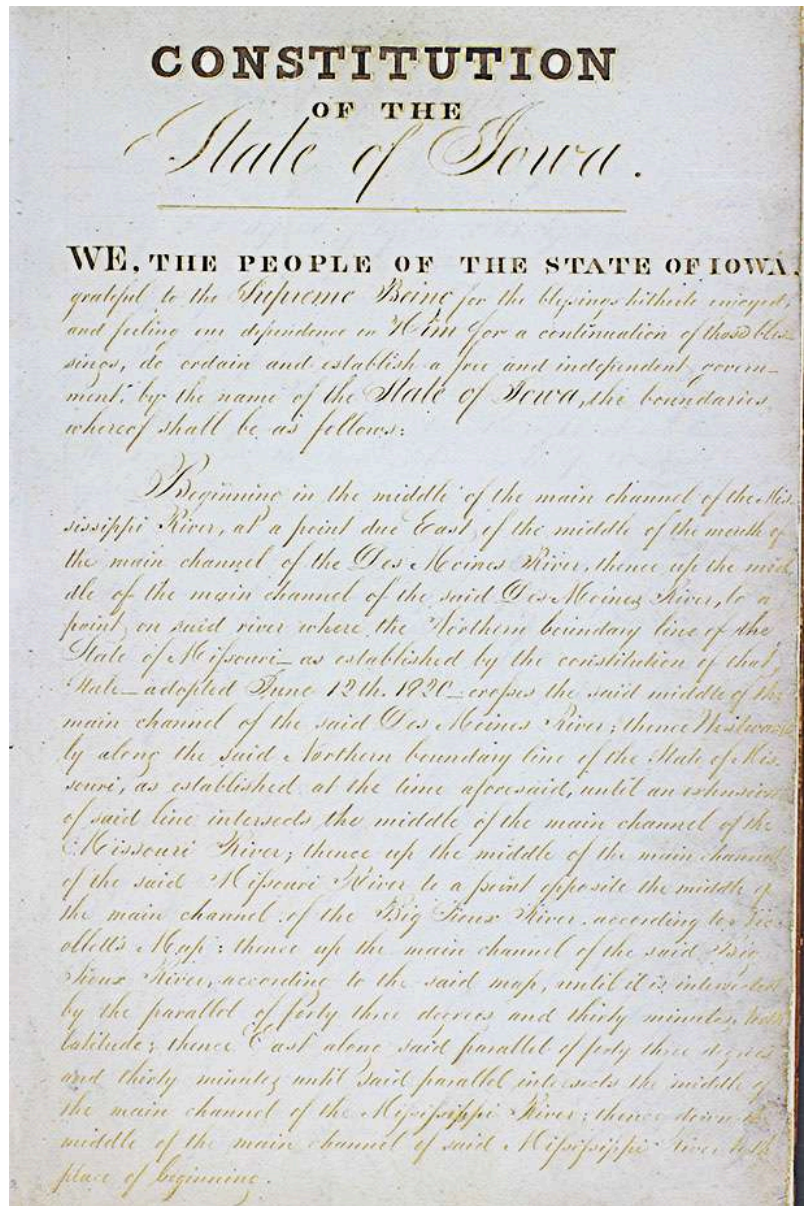 CONSTITUTION
OF THE
State of Iowa.
WE, THE PEOPLE OF THE STATE OF IOWA,
grateful to the Supreme Being for the blessings hitherto enjoyed,
and feeling our dependence on Him for a continuation of those bles-
sings, do ordain and establish a free and independent govern-
ment, by the name of the State of Iowa, the boundaries
whereof shall be as follows:
Beginning in the middle of the main channel of the Mis-
sissippi River, at a point due East of the middle of the mouth of
the main channel of the Des Moines River, thence up the mid
dle of the main channel of the said Des Moines River, to a
point on said river where the Northern boundary line of the
State of Missouri—as established by the constitution of that
State—adopted June 12th. 1820—crosses the said middle of the
main channel of the said Des Moines River; thence Westward
ly along the said Northern boundary line of the State of Mis-
souri, as established at the time aforesaid, until an extension
of said line intersects the middle of the main channel of the
Missouri River; thence up the middle of the main channel
of the said Missouri River to a point opposite the middle of
the main channel of the Big Sioux River, according to Nic-
ollett's Map; thence up the main channel of the said Big
Sioux River, according to the said map, until it is intersected
by the parallel of forty three degrees and thirty minutes North
latitude; thence East along said parallel of forty three degrees
and thirty minutes until said parallel intersects the middle of
the main channel of the Mississippi River; thence down the
middle of the main channel of said Mississippi river to the
place of beginning.